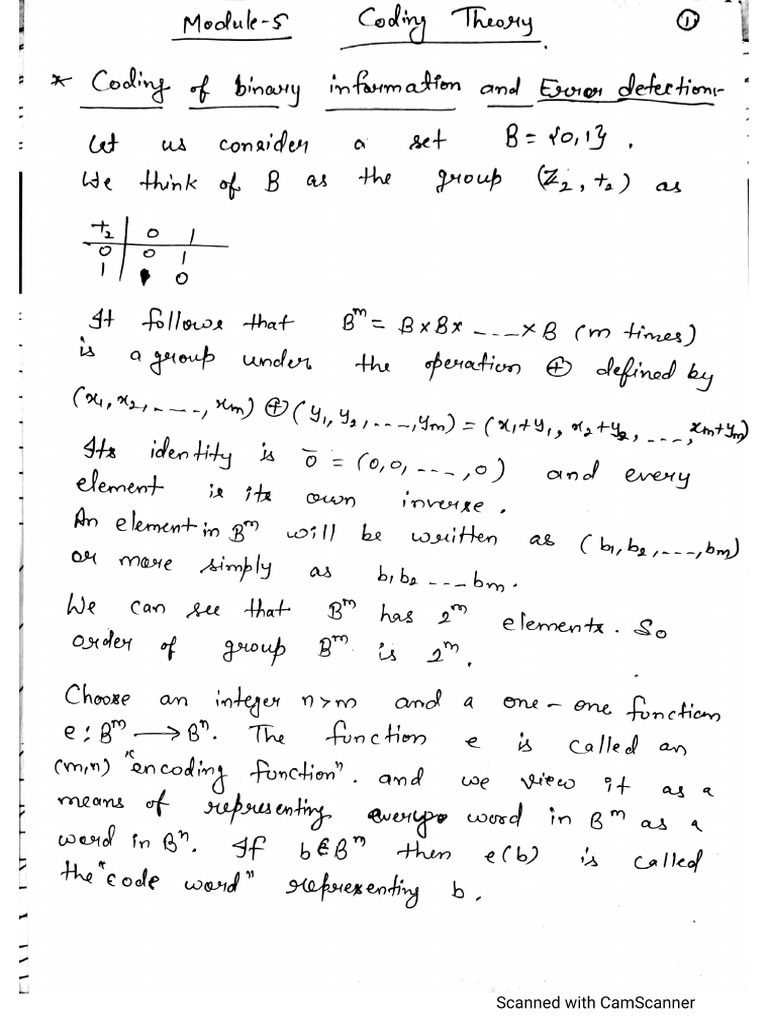 Module-5 Coding Theory. ①
* Coding of binary information and Error detection:-
Let us consider a set B = {0,1}.
We think of B as the group (Z₂, +₂) as
+₂ | 0 1
0 | 0 1
1 | 1 0
It follows that Bᵐ = B×B× -----×B (m times)
is a group under the operation ⊕ defined by
(x₁, x₂, -----, xm) ⊕ (y₁, y₂, ---, ym) = (x₁+y₁, x₂+y₂, ---, xm+ym)
Its identity is 0̄ = (0,0, ---,0) and every
element is its own inverse.
An element in Bᵐ will be written as (b₁, b₂, ---, bm)
or more simply as b₁b₂ --- bm.
We can see that Bᵐ has 2ᵐ elements. So
order of group Bᵐ is 2ᵐ.
Choose an integer n>m and a one-one function
e: Bᵐ → Bⁿ. The function e is called an
(m,n) "encoding function". and we view it as a
means of representing every word in Bᵐ as a
word in Bⁿ. If b∈Bᵐ then e(b) is called
the "code word" representing b.
Scanned with CamScanner